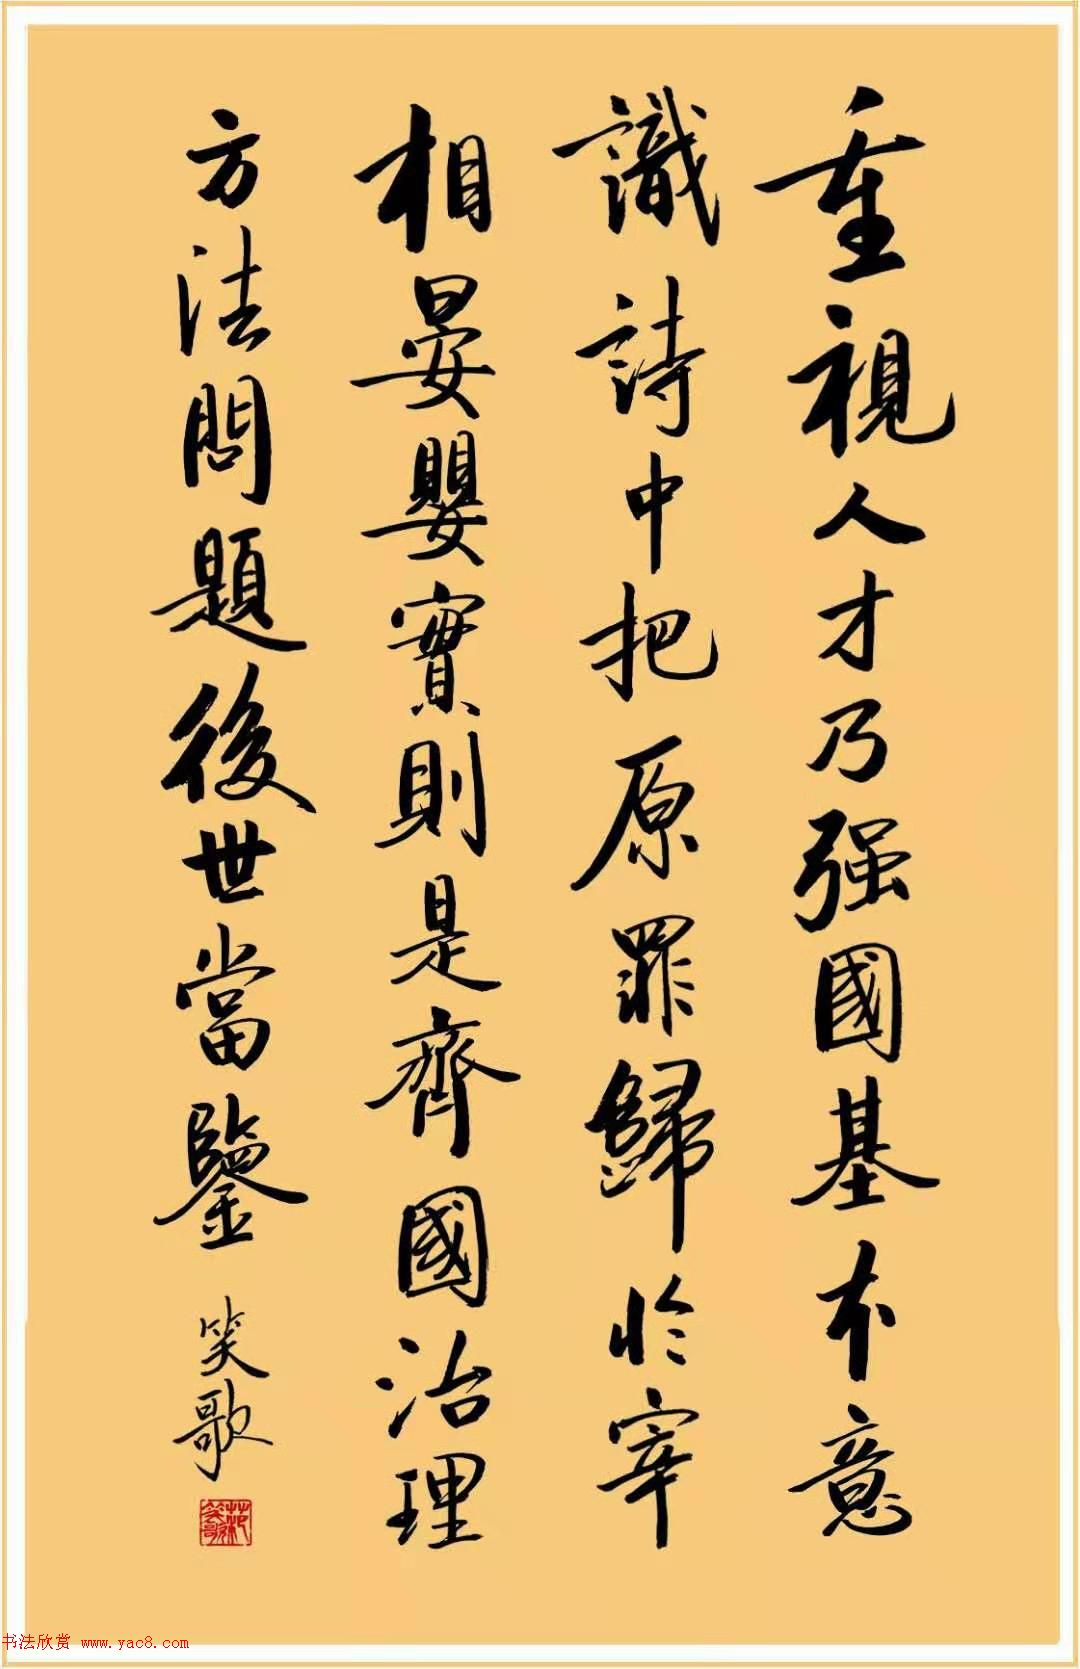 重視人才乃强國基本意
識詩中把原罪歸於宰
相晏嬰實則是齊國治理
方法問題後世當鑒
笑歌
书法欣赏 www.yac8.com